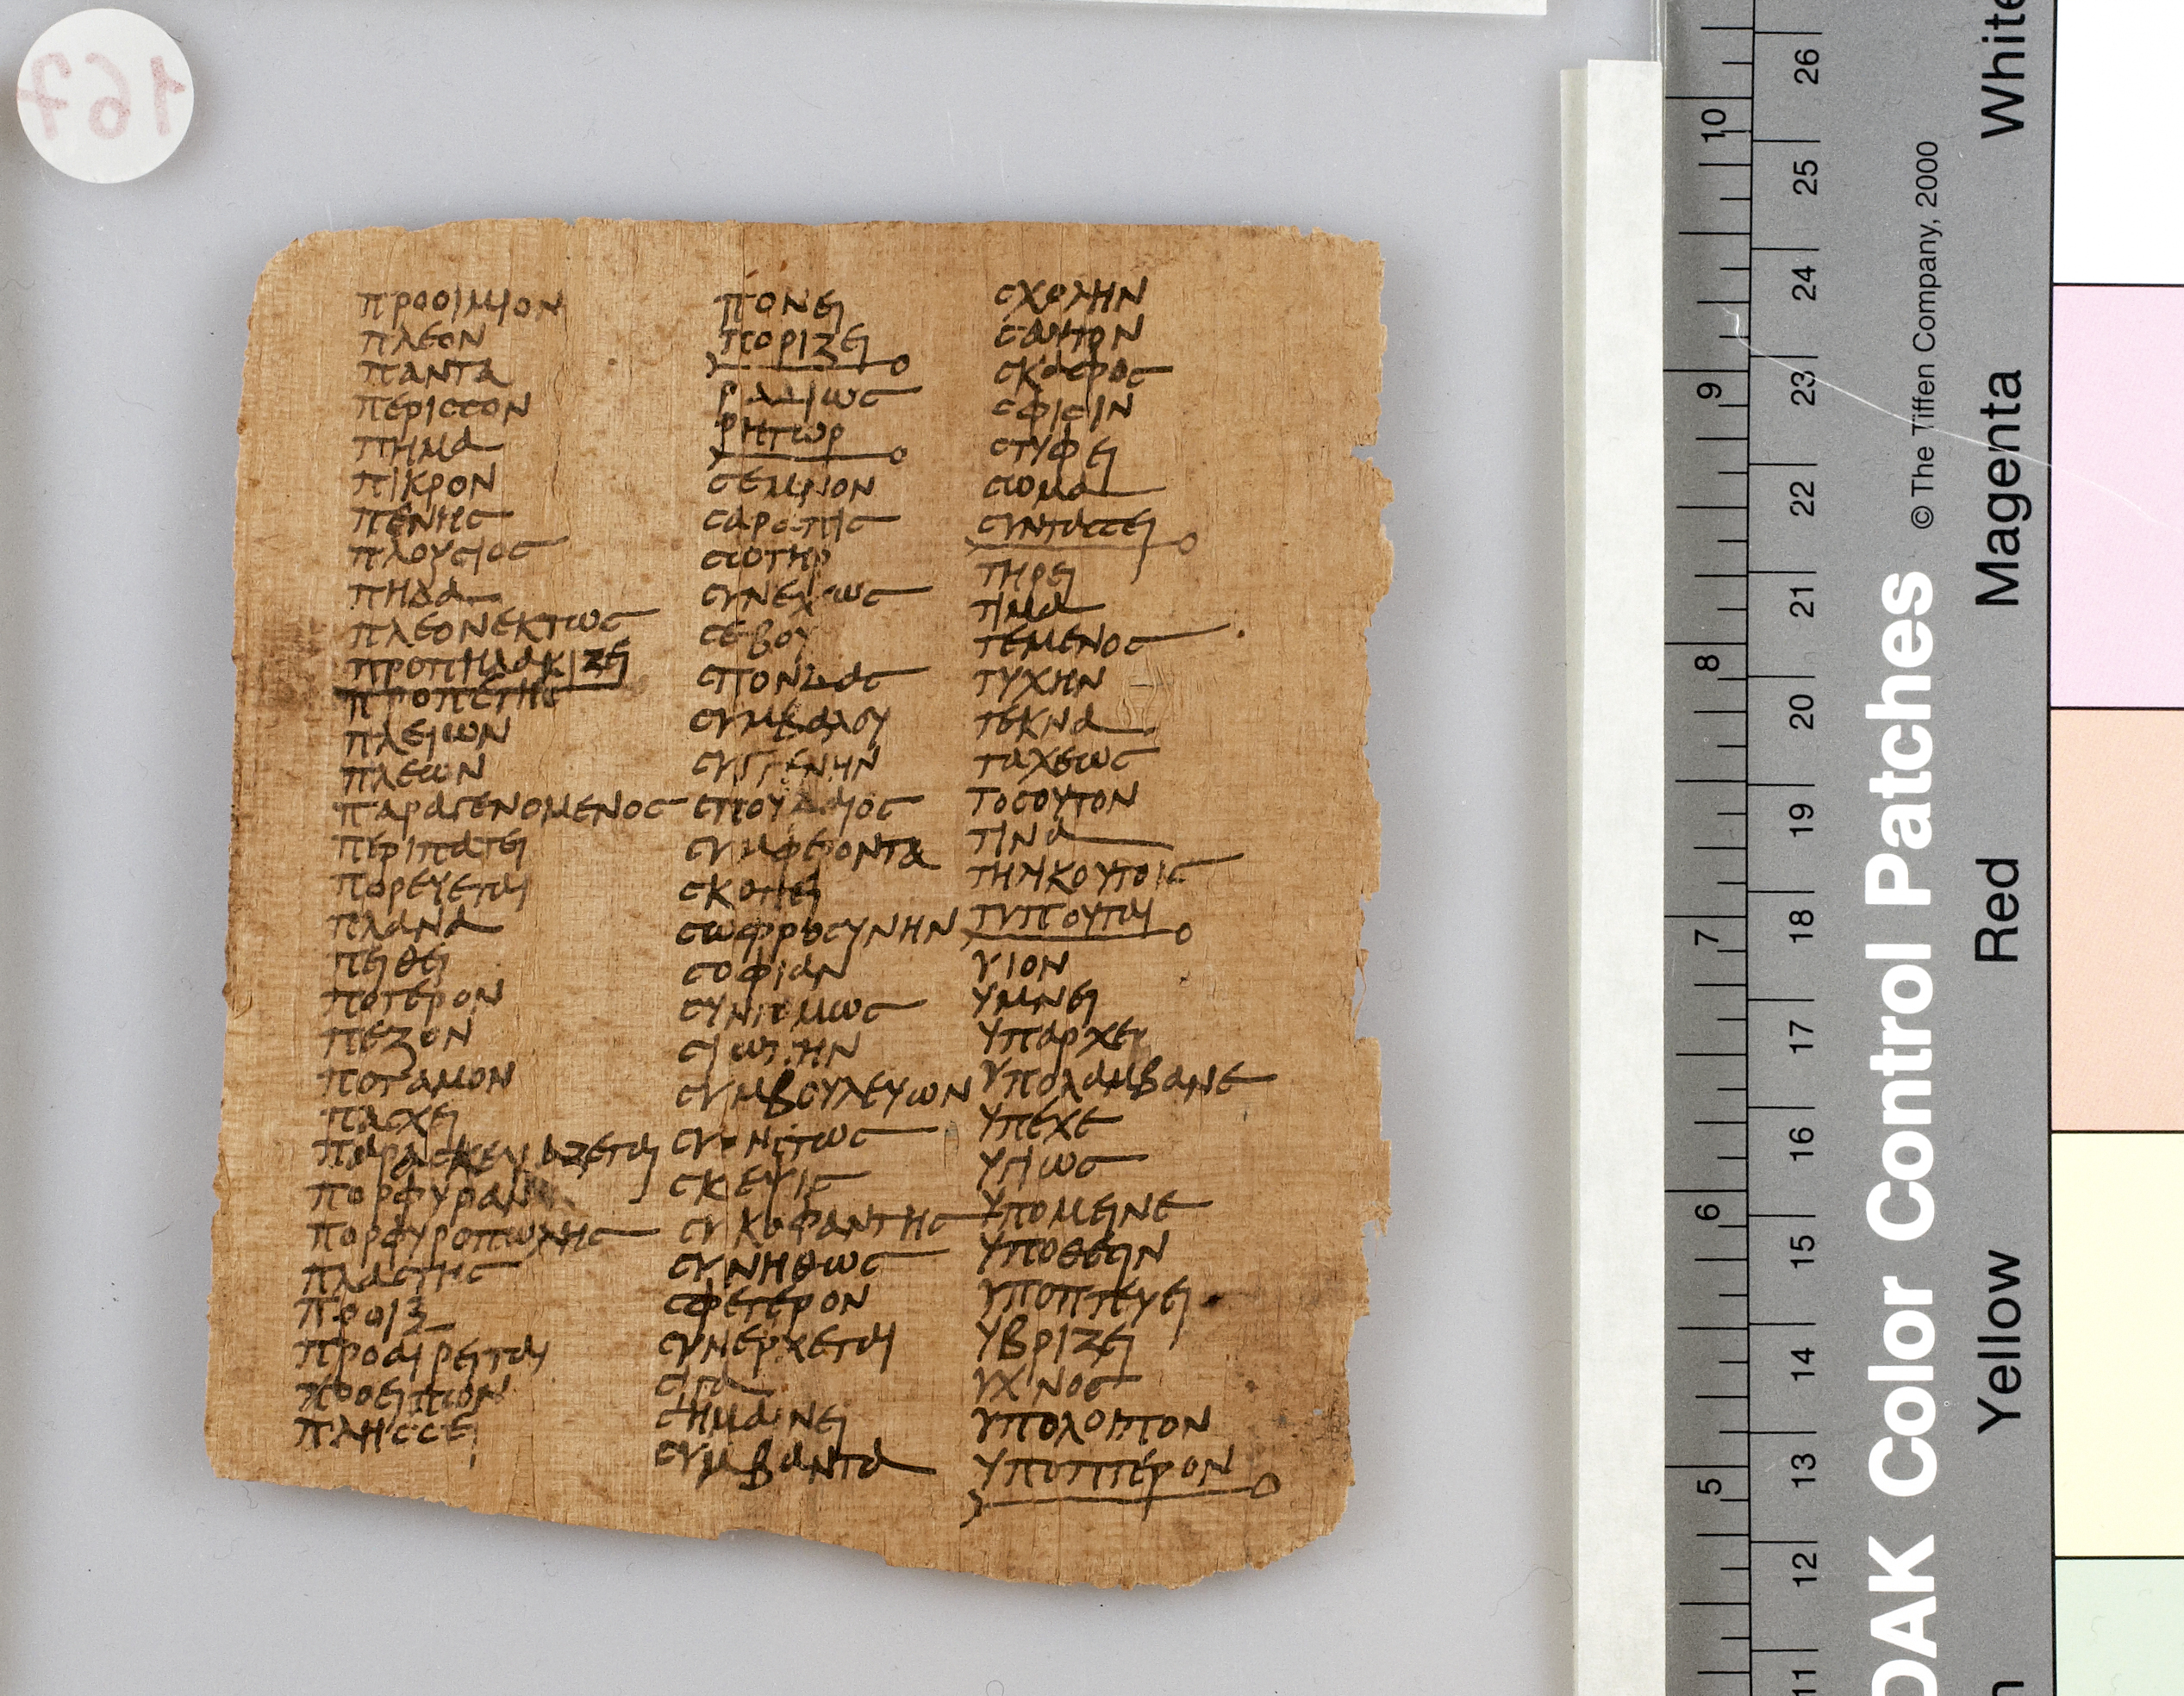 προοιμιον
πλεον
παντα
περισσον
πημα
πικρον
πενης
πλουσιος
πηδα
πλεονεκτως
προπηλακιζει
προπετης
πλειων
πλεων
παραγενομενος
περιπατει
πορευεται
πλανα
πειθει
ποτερον
πεζον
ποταμον
πασχει
παρασκευαζεται
πορφυραν
πορφυροπωλης
πλαστης
προιξ
προαιρειται
προσειπων
πλησσει
πονει
ποριζει
ραδιως
ρητωρ
σεμνον
σαραπις
σωτηρ
συνεχως
σεβου
σπονδας
συμβαλου
συγγενην
σπουδαιος
συμφεροντα
σκοπει
σωφροσυνην
σοφιαν
συντομως
σιωπην
συμβουλευων
σκεψις
συκοφαντης
συνηθως
σφετερον
συνερχεται
σιγα
σημαινει
συμβαντα
σχολην
σαυτον
σφισιν
στυφει
στομα
συντασσει
τηρει
τιμα
τεμενος
τυχην
τεκνα
ταχεως
τοσουτον
τινα
τηλικουτοις
τυπτουται
υιον
υμνει
υπαρχει
υπολαμβανε
υπεχε
υγιως
υπομεινε
υποθεσιν
υποπτευει
υβριζει
υπολοιπον
υποπτερον
167
26
10
25
24
9
23
22
21
8
20
19
7
18
17
16
6
15
14
13
5
12
11
© The Tiffen Company, 2000
DAK Color Control Patches
White
Magenta
Red
Yellow